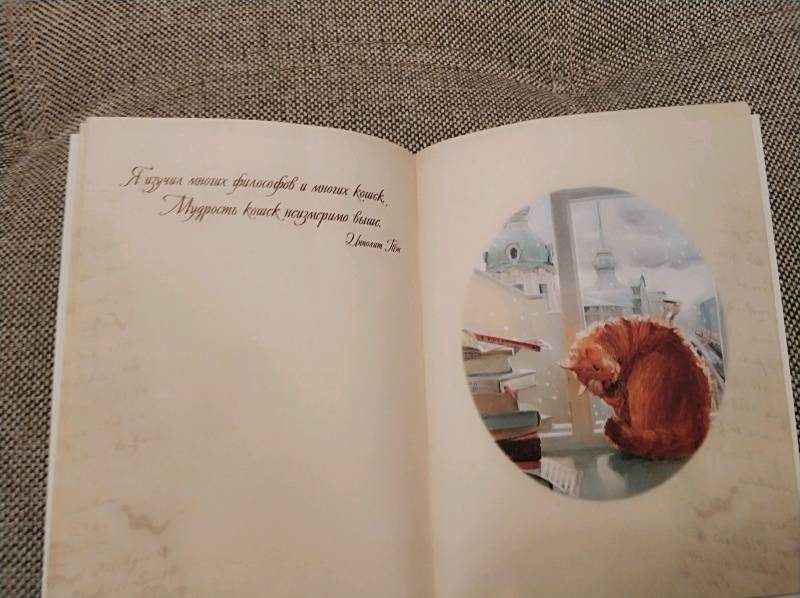 Я изучил многих философов и многих кошек.
Мудрость кошек неизмеримо выше.
Ипполит Тэн